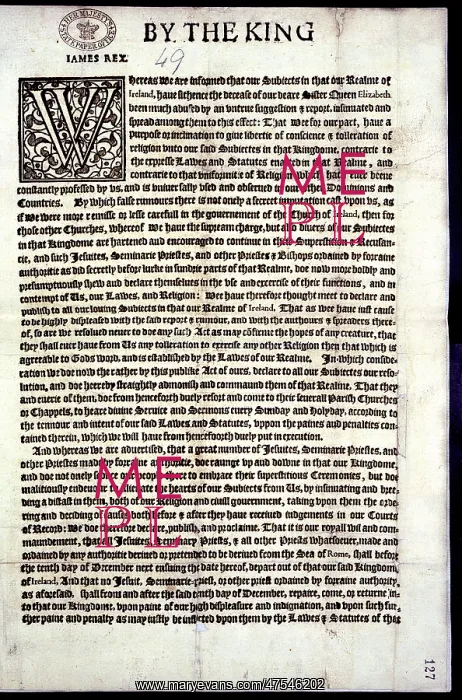 BY THE KING
49
IAMES REX.
WHereas we are informed that our Subiects in that our Realme of
Ireland, haue sithence the decease of our deare Sister Queen Elizabeth
been much abused by an vntrue suggestion & report, insinuated and
spread among them to this effect: That we for our part, haue a
purpose or inclination to giue libertie of conscience & tolleration of
religion vnto our said Subiects in that Kingdome, contrarie to
the expresse Lawes and Statutes enacted in that Realme, and
contrarie to that vniformitie of Religion which hath euer beene
constantly professed by vs, and is vniuersally vsed and obserued in our other Dominions and
Countries. By which false rumours there is not onely a secret imputation cast vpon vs, as
if we were more remisse or lesse carefull in the gouernement of the Church of Ireland, then for
those other Churches, whereof we haue the supream charge, but also diuers of our Subiects
in that Kingdome are hartened and encouraged to continue in their Superstition & Recusan-
cie, and such Jesuites, Seminarie Priestes, and other Priestes & Bishops ordained by forraine
authoritie as did secretly before lurke in sundrie parts of that Realme, doe now more boldly and
presumptuously shew and declare themselues in the vse and exercise of their functions, and in
contempt of Us, our Lawes, and Religion: We haue therefore thought meet to declare and
publish to all our louing Subiects in that our Realme of Ireland, That as wee haue iust cause
to be highly displeased with the said report & rumour, and with the authours & spreaders there-
of, so are we resolued neuer to doe any such Act as may cõfirme the hopes of any creature, that
they shall euer haue from Us any tolleration to exercise any other Religion then that which is
agreeable to Gods word, and is established by the Lawes of our Realme. In which conside-
ration we doe now the rather by this publike Act of ours, declare to all our Subiects our reso-
lution, and doe hereby straightly admonish and commaund them of that Realme. That they
and euerie of them, doe from henceforth duely resort and come to their seuerall Parish Churches
or Chappels, to heare diuine Seruice and Sermons euery Sunday and Holyday, according to
the tennour and intent of our said Lawes and Statutes, vppon the paines and penalties con-
tained therein, which we will haue from henceforth duely put in execution.
And whereas we are aduertised, that a great number of Jesuites, Seminarie Priestes, and
other Priestes made by forraine authoritie, doe raunge vp and downe in that our Kingdome,
and doe not onely to embrace their superstitious Ceremonies, but doe
maliticiously endeuour to alienate the hearts of our Subiects from Us, by insinuating and bree-
ding a distast in them, both of our Religion and ciuill gouernment, taking vpon them the orde-
ring and deciding of causes both before & after they haue receiued iudgements in our Courts
of Record: We doe therefore declare, publish, and proclaime, That it is our royall wil and com-
maundement, that all Jesuites, Seminary Priests, & all other Priests whatsoeuer, made and
ordained by any authoritie deriued or pretended to be deriued from the Sea of Rome, shall before
the tenth day of December next ensuing the date hereof, depart out of that our said Kingdom
of Ireland, And that no Jesuit, Seminarie-priest, or other priest ordained by forraine authority,
as aforesaid, shall from and after the said tenth day of December, repaire, come, or returne in-
to that our Kingdome, vpon paine of our high displeasure and indignation, and vpon such fur-
ther paine and penalty as may iustly be inflicted vpon them by the Lawes & Statutes of that
127
ME
PL
ME
PL
www.maryevans.com/47546202